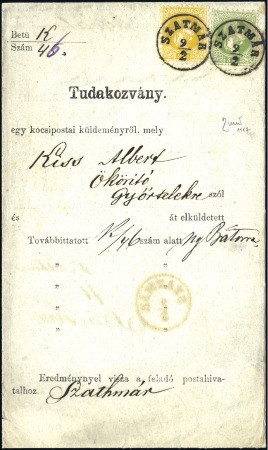 Betű K
Szám 46.
SZATMÁR
9
2
SZATMÁR
9
2
Tudakozvány.
egy kocsipostai küldeményről, mely
Kiss Albert
Ököritó
Győrtelekre szól
és át elküldetett
Továbbittatott K/46 szám alatt Ny Bátorra
" "
" "
" "
" "
Eredménynyel vissza a feladó postahiva-
talhoz. Szathmár